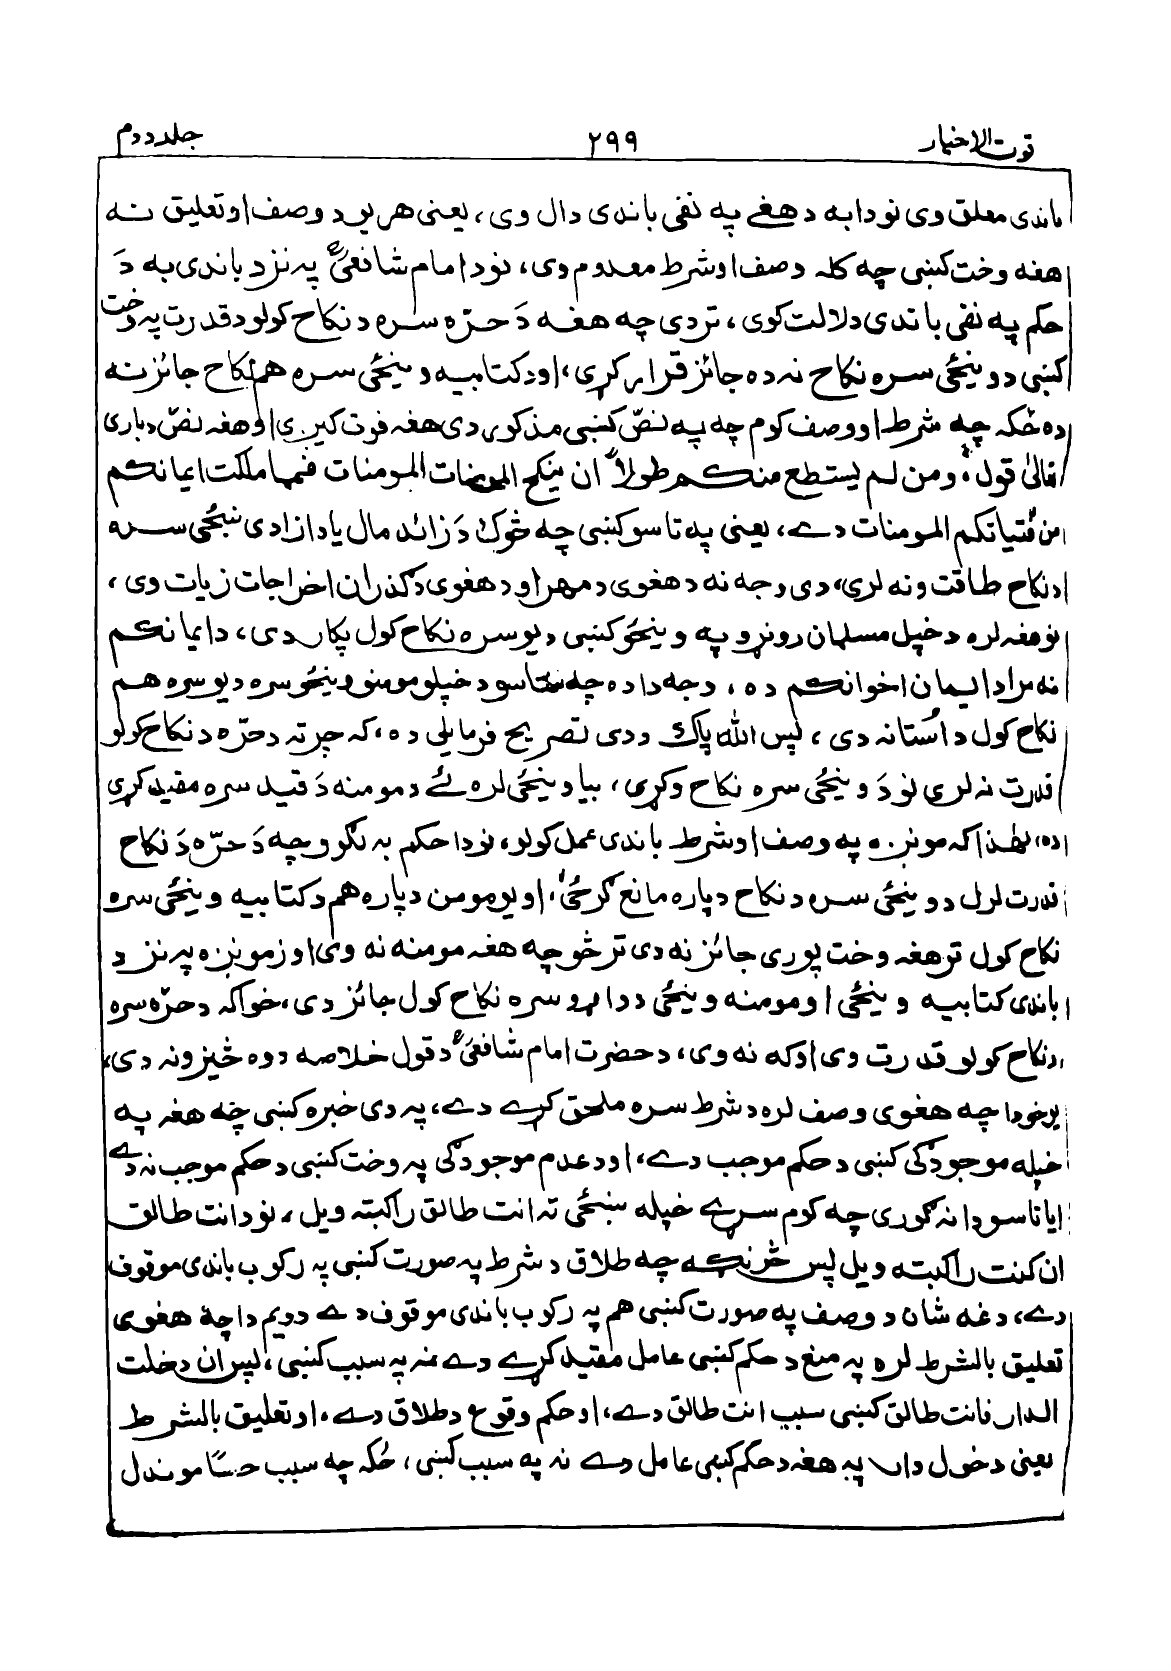 قوت الاخیار ۲۹۹ جلد دوم
باندی معلق وی نو دا به د هغے په نفی باندی دال وی، یعنی هر یو د وصف او تعلیق نه
هغه وخت کښی چه کله وصف او شرط معدوم وی، نو د امام شافعیؒ په نزد باندی به دَ
حکم په نفی باندی دلالت کوی، تردی چه هغه دَ حرّه سره د نکاح کولو د قدرت په وخت
کښی د وینځی سره نکاح نه ده جائز قرار کړی، او د کتابیه وینځی سره هم نکاح جائز نه
ده ځکه چه شرط او وصف کوم چه په نصّ کښی مذکور دی هغه فوت کیږی او هغه نصّ د باری
تعالیٰ قول؛ ومن لم یستطع منکم طولاً ان ینکح المحصنات المومنات فمما ملکت ایمانکم
من فتیاتکم المومنات دے، یعنی په تاسو کښی چه څوک دَ زائد مال یا د ازادی ښځی سره
د نکاح طاقت ونه لری، دی وجه نه د هغوی د مهر او د هغوی د گذران اخراجات زیات وی،
نو هغه لره د خپل مسلمان رونړو په وینځو کښی د یو سره نکاح کول پکار دی، د ایمانکم
نه مراد ایمان اخوانکم ده، وجه دا ده چه ستاسو د خپلو مومنو وینځو سره د یو سره هم
نکاح کول داُستا نه دی، پس الله پاک ددی تصریح فرمایلی ده، که چرته د حرّه د نکاح کولو
قدرت نه لری نو دَ وینځی سره نکاح وکړی، بیا وینځی لره ئے د مومنه دَ قید سره مقید کړی
ده، لهٰذا که مونږه په وصف او شرط باندی عمل کولو، نو دا حکم به لگوو چه دَ حرّه دَ نکاح
قدرت لرل د وینځی سره د نکاح دپاره مانع گرځی، او یو مومن دپاره هم د کتابیه وینځی سره
نکاح کول تر هغه وخت پوری جائز نه دی تر څو چه هغه مومنه نه وی او زمونږه په نزد
باندی کتابیه وینځی او مومنه وینځی دواړو سره نکاح کول جائز دی، خواکه د حرّه سره
د نکاح کولو قدرت وی او که نه وی، د حضرت امام شافعیؒ د قول خلاصه دوه څیزونه دی،
یو خو دا چه هغوی وصف لره د شرط سره ملحق کړے دے، په دی خبره کښی چه هغه په
خپله موجودگی کښی د حکم موجب دے، او د عدم موجودگی په وخت کښی د حکم موجب نه دے
ایا تاسو دا نه گوری چه کوم سړے خپله ښځی ته انت طالق راکبته ویل، نو د انت طالق
ان کنت راکبته ویل پس څرنگه چه طلاق د شرط په صورت کښی په رکوب باندی موقوف
دے، دغه شان د وصف په صورت کښی هم په رکوب باندی موقوف دے دویم دا چه هغوی
تعلیق بالشرط لره په منع د حکم کښی عامل مقید کړے دے نه په سبب کښی، پس ان دخلت
الدار فانت طالق کښی سبب انت طالق دے، او حکم وقوع د طلاق دے، او تعلیق بالشرط
یعنی دخول دار په هغه د حکم کښی عامل دے نه په سبب کښی، ځکه چه سبب حسّا موندل